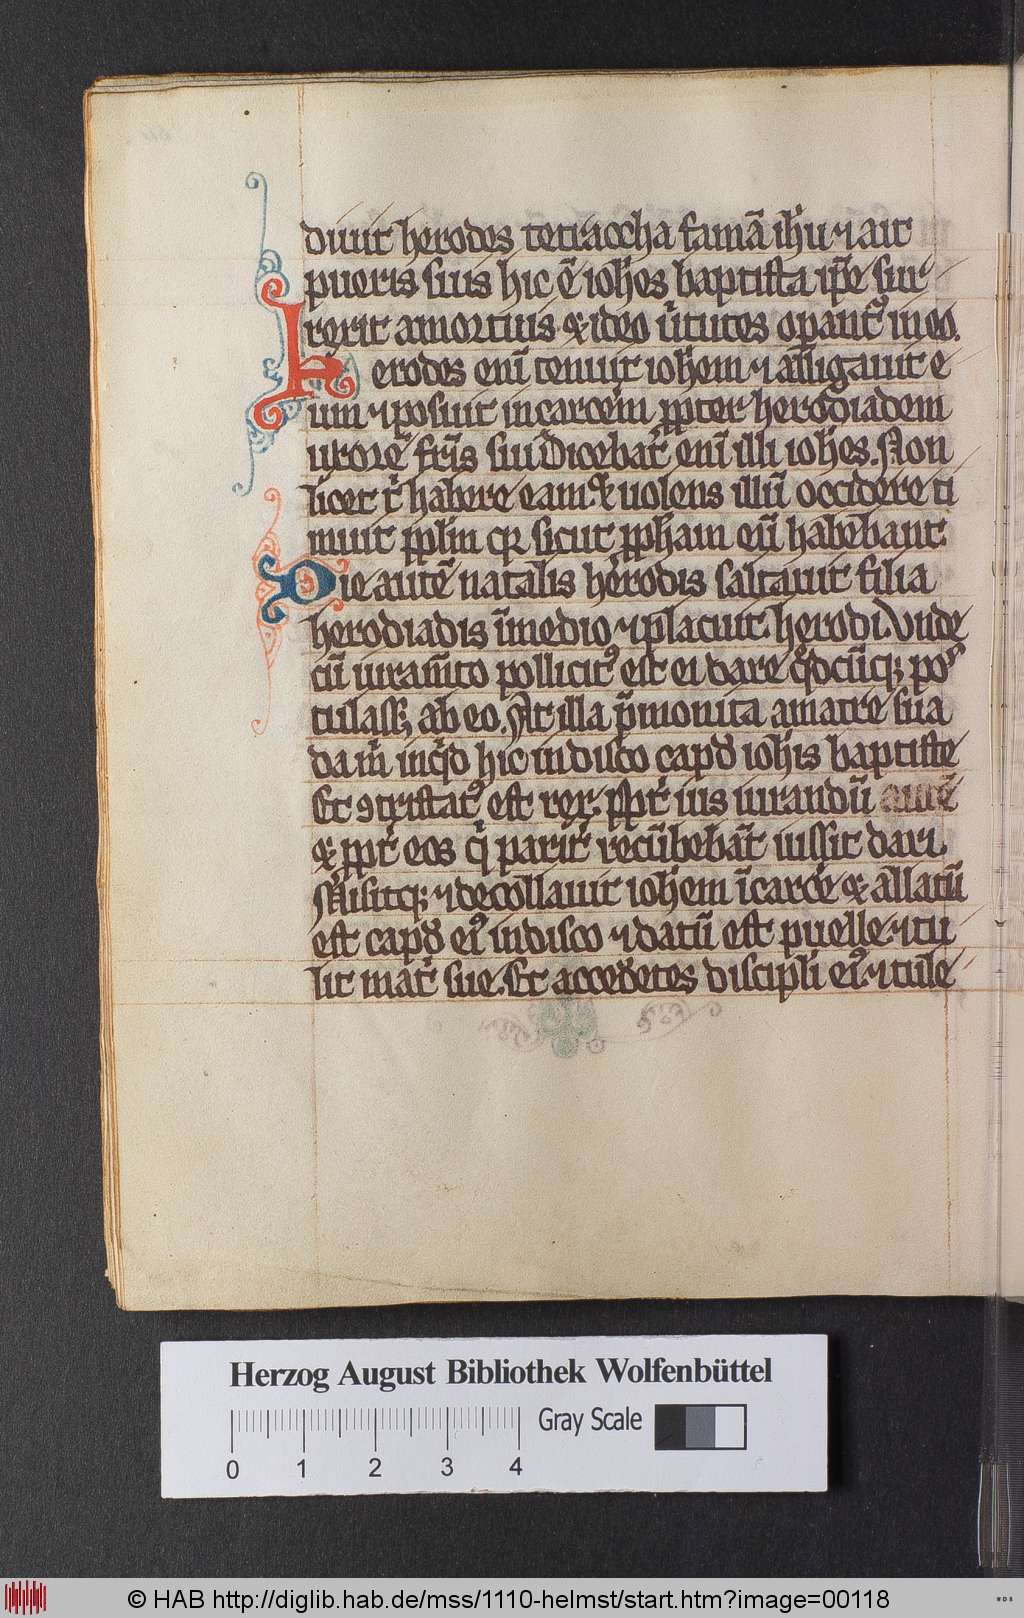 diuit herodes tetraccha famā ih̄u ⁊ ait
pueris suis hic ē ioh̄es baptista ip̄e sur
rexit a mortuis & ideo ũtutes opant᷒ in eo.
Herodes eni᷒ tenuit ioh̄em ⁊ alligauit e
um ⁊ posuit in carcem ꝓpter herodiadem
uxorē fr̄is sui Dicebat᷒ eni᷒ illi ioh̄es. Non
licet t̄ habere eam & uolens illū occidere ti
muit pp̄lm qꝛ sicut ꝓph̄am eū habebant
Die autē natalis herodis saltauit filia
herodiadis ī medio ⁊ placuit herodi. Vnde
cū iuram̄to pollicit᷒ est ei dare qͦdcūqꝫ pos
tulassꝫ ab eo. At illa p̄monita a matre sua
da m̄ inqͥd hic in disco capd̄ ioh̄is baptiste
Et ꝯtristat᷒ est rex. ꝓpt̄ ius iurandū autē
& ꝓpt̄ eos qͥ parit̄ recūbebāt iussit dari
Misitqꝫ ⁊ decollauit ioh̄em ī carcē & allatū
est capd̄ ei᷒ in disco ⁊ datū est puelle ⁊ tu
lit mat̄ sue. Et accedētes discipli᷒ ei᷒ ⁊ tule
Herzog August Bibliothek Wolfenbüttel
Gray Scale
0 1 2 3 4
© HAB http://diglib.hab.de/mss/1110-helmst/start.htm?image=00118